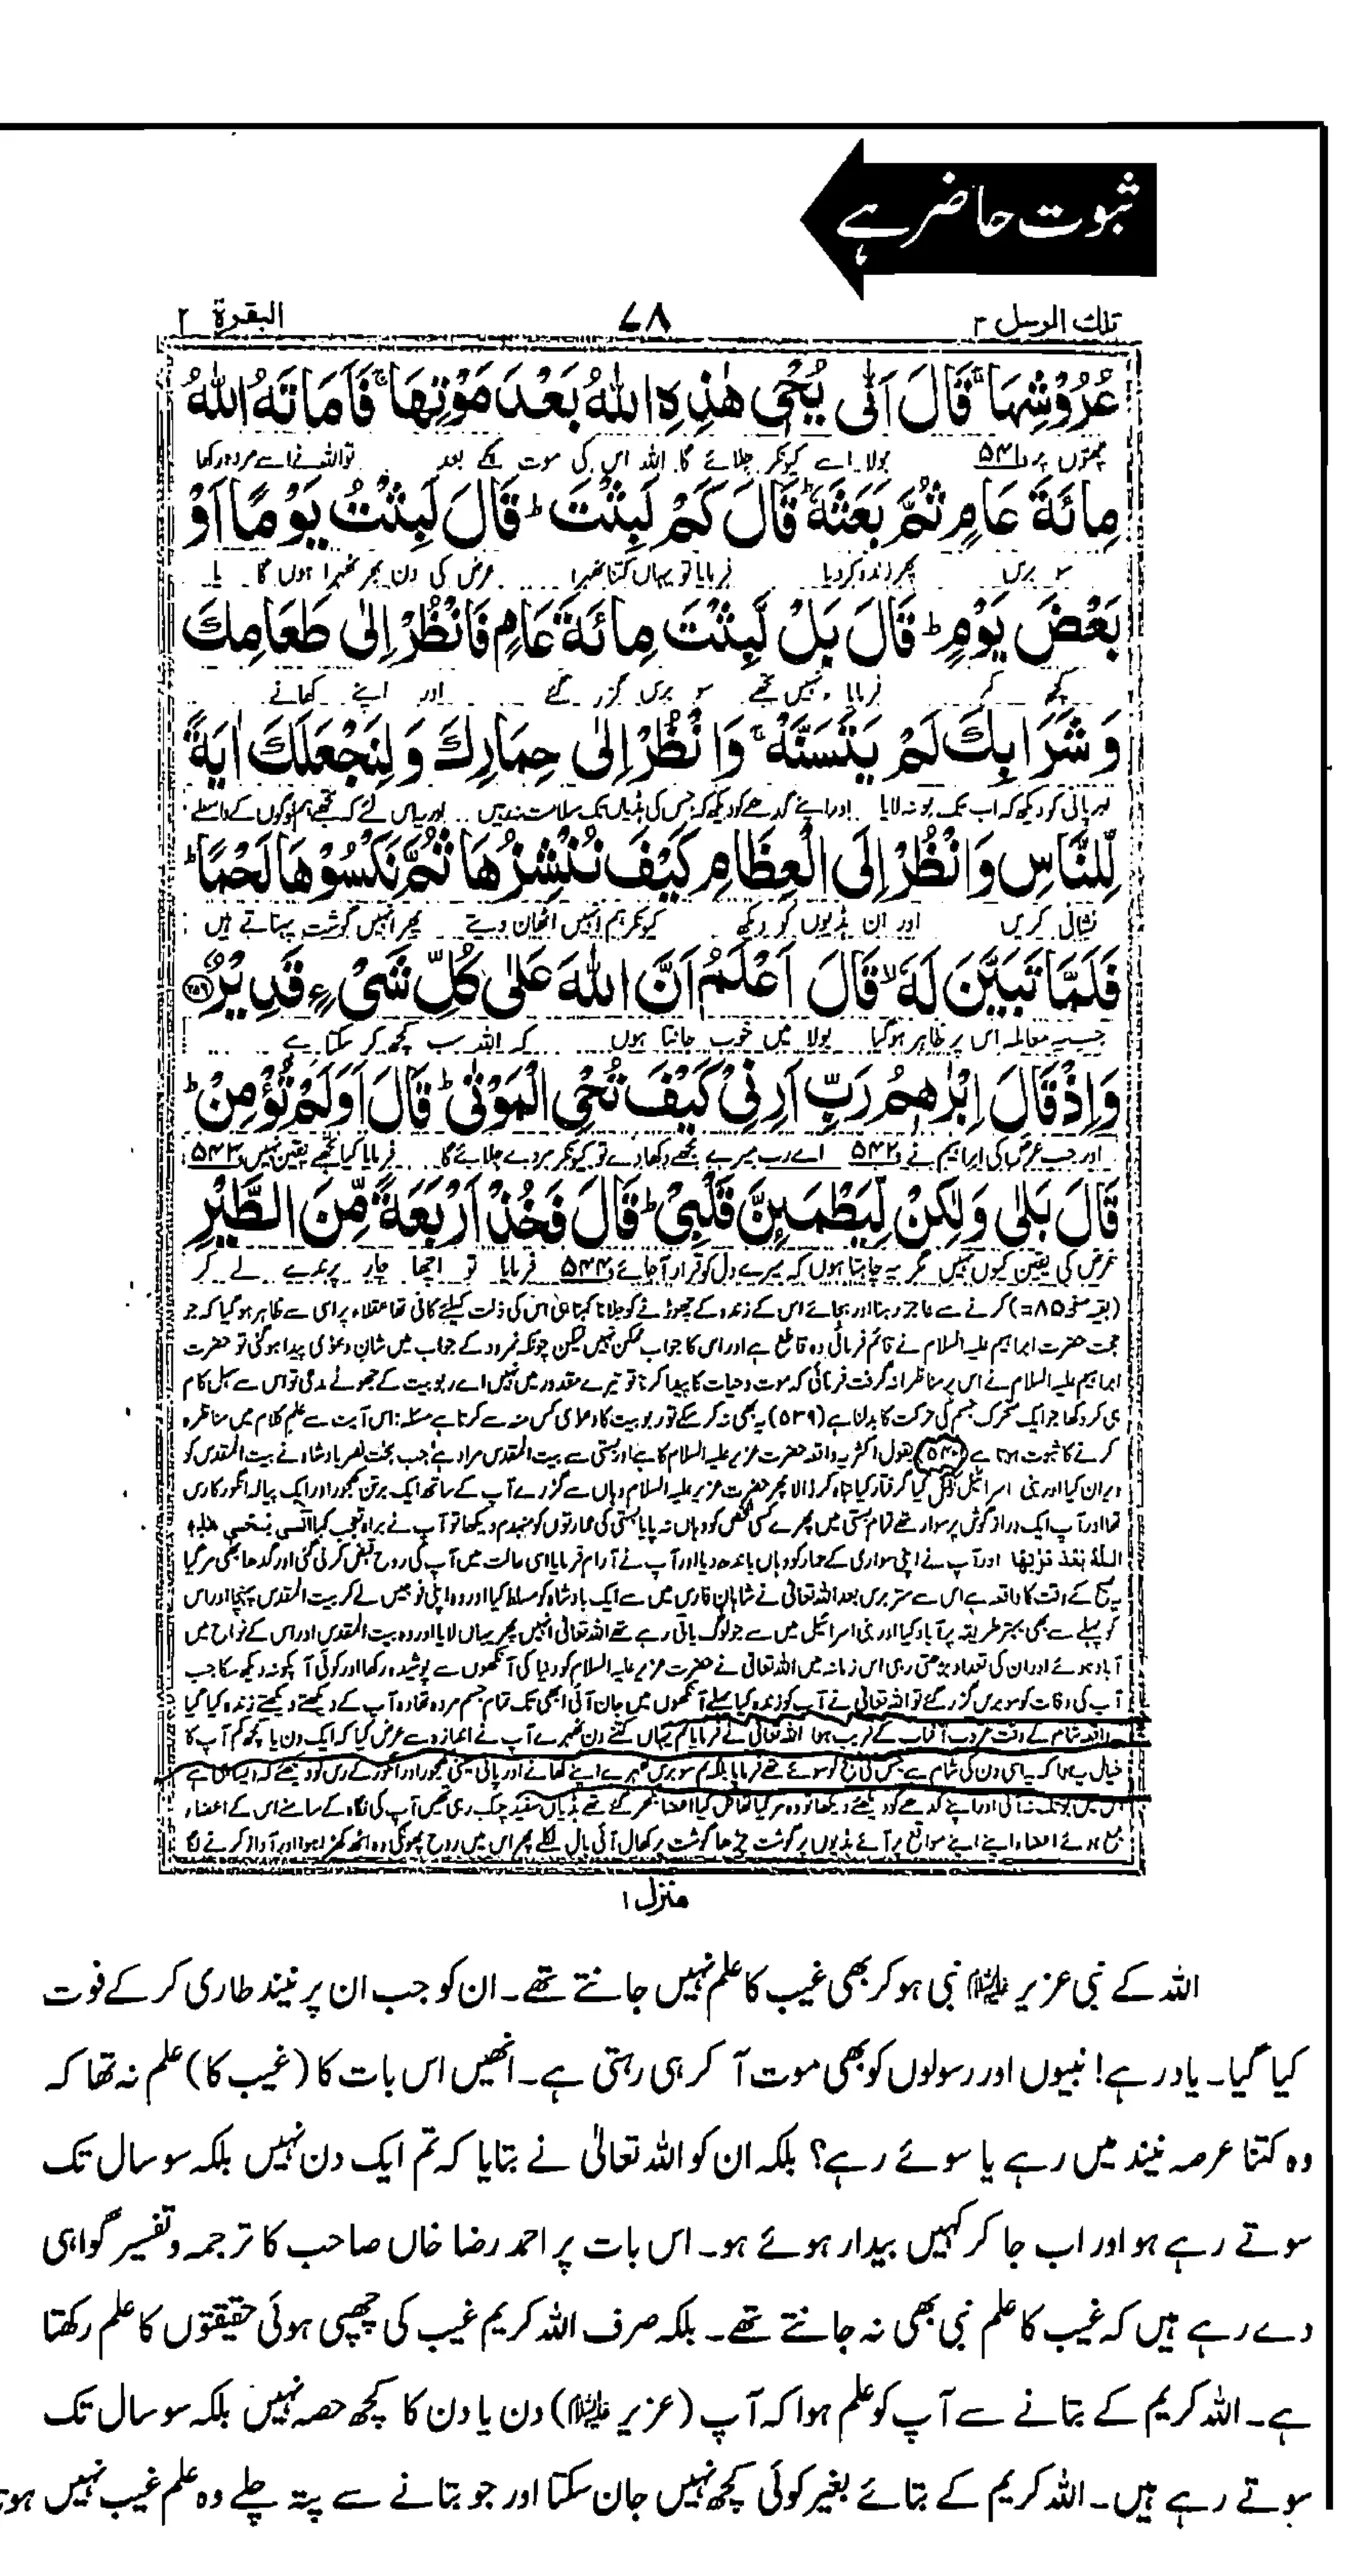 ثبوت حاضر ہے
تلك الرسل ۳ ۷۸ البقرة ۲
عُرُوْشِهَا ۚ قَالَ اَنّٰى يُحْیٖ هٰذِهِ اللّٰهُ بَعْدَ مَوْتِهَا ۚ فَاَمَاتَهُ اللّٰهُ
چھتوں پر ف۵۴۱ بولا اسے کیونکر جِلائے گا اللہ اس کی موت کے بعد تو اللہ نے اسے مردہ رکھا
مِائَةَ عَامٍ ثُمَّ بَعَثَهٗ ؕ قَالَ كَمْ لَبِثْتَ ؕ قَالَ لَبِثْتُ يَوْمًا اَوْ
سو برس پھر زندہ کردیا فرمایا تو یہاں کتنا ٹھہرا عرض کی دن بھر ٹھہرا ہوں گا یا
بَعْضَ يَوْمٍ ؕ قَالَ بَلْ لَّبِثْتَ مِائَةَ عَامٍ فَانْظُرْ اِلٰى طَعَامِكَ
کچھ کم فرمایا نہیں تجھے سو برس گزر گئے اور اپنے کھانے
وَ شَرَابِكَ لَمْ يَتَسَنَّهْ ۚ وَ انْظُرْ اِلٰى حِمَارِكَ وَ لِنَجْعَلَكَ اٰيَةً
اور پانی کو دیکھ کہ اب تک بو نہ لایا اور اپنے گدھے کو دیکھ کہ جس کی ہڈیاں تک سلامت نہ رہیں اور یہ اس لئے کہ تجھے ہم لوگوں کے واسطے
لِّلنَّاسِ وَ انْظُرْ اِلَى الْعِظَامِ كَيْفَ نُنْشِزُهَا ثُمَّ نَكْسُوْهَا لَحْمًا ؕ
نشانی کریں اور ان ہڈیوں کو دیکھ کیونکر ہم انہیں اٹھان دیتے پھر انہیں گوشت پہناتے ہیں
فَلَمَّا تَبَيَّنَ لَهٗ ۙ قَالَ اَعْلَمُ اَنَّ اللّٰهَ عَلٰى كُلِّ شَیْءٍ قَدِيْرٌ ۲۵۹
جب یہ معاملہ اس پر ظاہر ہوگیا بولا میں خوب جانتا ہوں کہ اللہ سب کچھ کر سکتا ہے
وَ اِذْ قَالَ اِبْرٰهٖمُ رَبِّ اَرِنِیْ كَيْفَ تُحْیِ الْمَوْتٰى ؕ قَالَ اَوَ لَمْ تُؤْمِنْ ؕ
اور جب عرض کی ابراہیم نے ف۵۴۲ اے رب میرے مجھے دکھا دے تو کیونکر مردے جِلائے گا فرمایا کیا تجھے یقین نہیں ف۵۴۳
قَالَ بَلٰى وَ لٰكِنْ لِّيَطْمَىِٕنَّ قَلْبِیْ ؕ قَالَ فَخُذْ اَرْبَعَةً مِّنَ الطَّيْرِ
عرض کی یقین کیوں نہیں مگر یہ چاہتا ہوں کہ میرے دل کو قرار آجائے ف۵۴۴ فرمایا تو اچھا چار پرندے لے کر
(بقیہ صفحہ ۸۵=) کرنے سے عاجز رہنا اور بجائے اس کے زندہ کے چھوڑنے کو جِلانا کہنا ہی اس کی ذلت کیلئے کافی تھا عقلاء پر اسی سے ظاہر ہوگیا کہ جو
حجت حضرت ابراہیم علیہ السلام نے قائم فرمائی وہ قاطع ہے اور اس کا جواب ممکن نہیں لیکن چونکہ نمرود کے جواب میں شان دعوٰی پیدا ہوگئی تو حضرت
ابراہیم علیہ السلام نے اس پر مناظرانہ گرفت فرمائی کہ موت و حیات کا پیدا کرنا تو تیرے مقدور میں نہیں اے ربوبیت کے جھوٹے مدعی تو اس سے سہل کام
ہی کر دکھا جو ایک متحرک جسم کی حرکت کا بدلنا ہے (۵۳۹) یہ بھی نہ کر سکے تو ربوبیت کا دعوٰی کس منہ سے کرتا ہے مسئلہ: اس آیت سے علم کلام میں مناظرہ
کرنے کا ثبوت ہوتا ہے (۵۴۰) بقول اکثر یہ واقعہ حضرت عزیر علیہ السلام کا ہے اور بستی سے بیت المقدس مراد ہے جب بخت نصر بادشاہ نے بیت المقدس کو
ویران کیا اور بنی اسرائیل کو قتل کیا گرفتار کیا تباہ کر ڈالا پھر حضرت عزیر علیہ السلام وہاں سے گزرے آپ کے ساتھ ایک برتن کھجور اور ایک پیالہ انگور کا رس
تھا اور آپ ایک دراز گوش پر سوار تھے تمام بستی میں پھرے کسی شخص کو وہاں نہ پایا بستی کی عمارتوں کو منہدم دیکھا تو آپ نے براہ تعجب کہا اَنّٰی یُحْیِیْ هٰذِهِ
اللّٰهُ بَعْدَ مَوْتِهَا اور آپ نے اپنی سواری کے حمار کو وہاں باندھ دیا اور آپ نے آرام فرمایا اسی حالت میں آپ کی روح قبض کرلی گئی اور گدھا بھی مر گیا
یہ صبح کے وقت کا واقعہ ہے اس سے ستر برس بعد اللہ تعالٰی نے شاہان فارس میں سے ایک بادشاہ کو مسلط کیا اور وہ اپنی فوجیں لے کر بیت المقدس پہنچا اور اس
کو پہلے سے بھی بہتر طریقہ پر آباد کیا اور بنی اسرائیل میں سے جو لوگ باقی رہے تھے اللہ تعالٰی انہیں پھر یہاں لایا اور وہ بیت المقدس اور اس کے نواح میں
آباد ہوئے اور ان کی تعداد بڑھتی رہی اس زمانہ میں اللہ تعالٰی نے حضرت عزیر علیہ السلام کو دنیا کی آنکھوں سے پوشیدہ رکھا اور کوئی آپ کو نہ دیکھ سکا جب
آپ کی وفات کو سو برس گزر گئے تو اللہ تعالٰی نے آپ کو زندہ کیا پہلے آنکھوں میں جان آئی ابھی تک تمام جسم مردہ تھا وہ آپ کے دیکھتے دیکھتے زندہ کیا گیا
یہ واقعہ شام کے وقت غروب آفتاب کے قریب ہوا اللہ تعالٰی نے فرمایا تم یہاں کتنے دن ٹھہرے آپ نے اندازہ سے عرض کیا کہ ایک دن یا کچھ کم آپ کا
خیال یہ ہوا کہ یہ اسی دن کی شام ہے جس کی صبح کو سوئے تھے فرمایا بلکہ تم سو برس ٹھہرے اپنے کھانے اور پانی یعنی کھجور اور انگور کے رس کو دیکھئے کہ ویسا ہی ہے
اس میں بو تک نہ آئی اور اپنے گدھے کو دیکھئے دیکھا تو وہ مر گیا تھا گل گیا اعضا بکھر گئے تھے ہڈیاں سفید چمک رہی تھیں آپ کی نگاہ کے سامنے اس کے اعضاء
جمع ہوئے اعضاء اپنے اپنے مواقع پر آئے ہڈیوں پر گوشت چڑھا گوشت پر کھال آئی بال نکلے پھر اس میں روح پھونکی وہ اٹھ کھڑا ہوا اور آواز کرنے لگا
منزل ۱
اللہ کے نبی عزیر علیہ السلام نبی ہو کر بھی غیب کا علم نہیں جانتے تھے۔ ان کو جب ان پر نیند طاری کر کے فوت
کیا گیا۔ یاد رہے! نبیوں اور رسولوں کو بھی موت آ کر ہی رہتی ہے۔ انھیں اس بات کا (غیب کا) علم نہ تھا کہ
وہ کتنا عرصہ نیند میں رہے یا سوئے رہے؟ بلکہ ان کو اللہ تعالیٰ نے بتایا کہ تم ایک دن نہیں بلکہ سو سال تک
سوتے رہے ہو اور اب جا کر کہیں بیدار ہوئے ہو۔ اس بات پر احمد رضا خاں صاحب کا ترجمہ و تفسیر گواہی
دے رہے ہیں کہ غیب کا علم نبی بھی نہ جانتے تھے۔ بلکہ صرف اللہ کریم غیب کی چھپی ہوئی حقیقتوں کا علم رکھتا
ہے۔ اللہ کریم کے بتانے سے آپ کو علم ہوا کہ آپ (عزیر علیہ السلام) دن یا دن کا کچھ حصہ نہیں بلکہ سو سال تک
سوتے رہے ہیں۔ اللہ کریم کے بتائے بغیر کوئی کچھ نہیں جان سکتا اور جو بتانے سے پتہ چلے وہ علم غیب نہیں